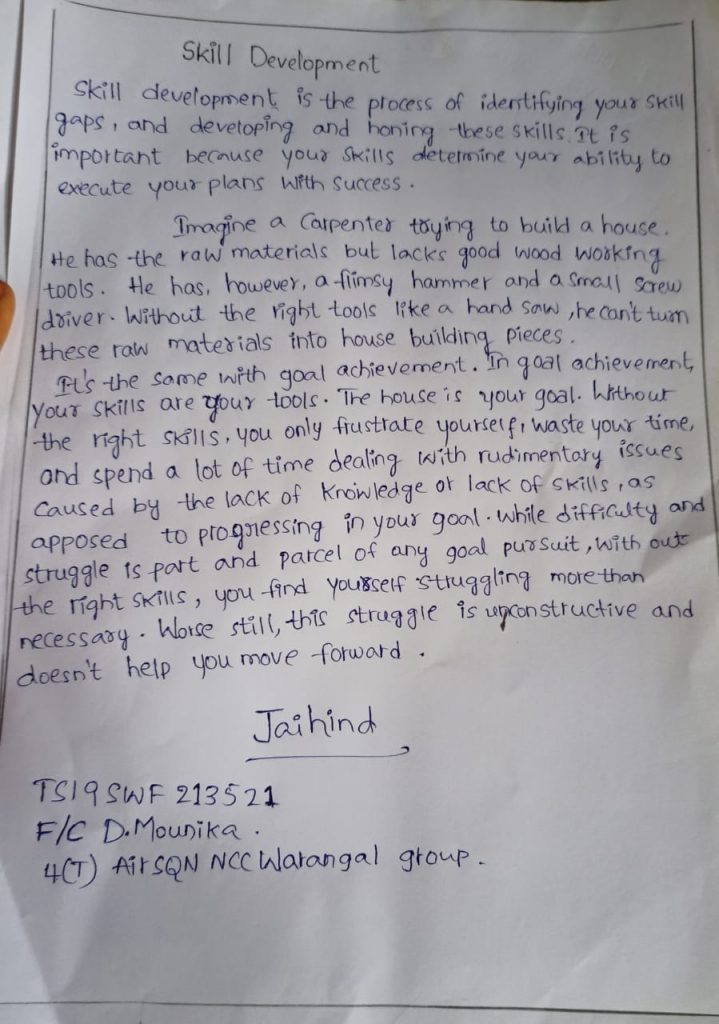 Skill Development
Skill development is the process of identifying your skill
gaps, and developing and honing these skills. It is
important because your skills determine your ability to
execute your plans with success.
Imagine a Carpenter trying to build a house.
He has the raw materials but lacks good wood working
tools. He has, however, a flimsy hammer and a small screw
driver. Without the right tools like a hand saw, he can't turn
these raw materials into house building pieces.
It's the same with goal achievement. In goal achievement,
your skills are your tools. The house is your goal. Without
the right skills, you only frustrate yourself, waste your time,
and spend a lot of time dealing with rudimentary issues
caused by the lack of knowledge or lack of skills, as
apposed to progressing in your goal. While difficulty and
struggle is part and parcel of any goal pursuit, with out
the right skills, you find yourself struggling more than
necessary. Worse still, this struggle is unconstructive and
doesn't help you move forward.
Jaihind
TS19SWF213521
F/C D.Mounika.
4(T) Air SQN NCC Warangal group.